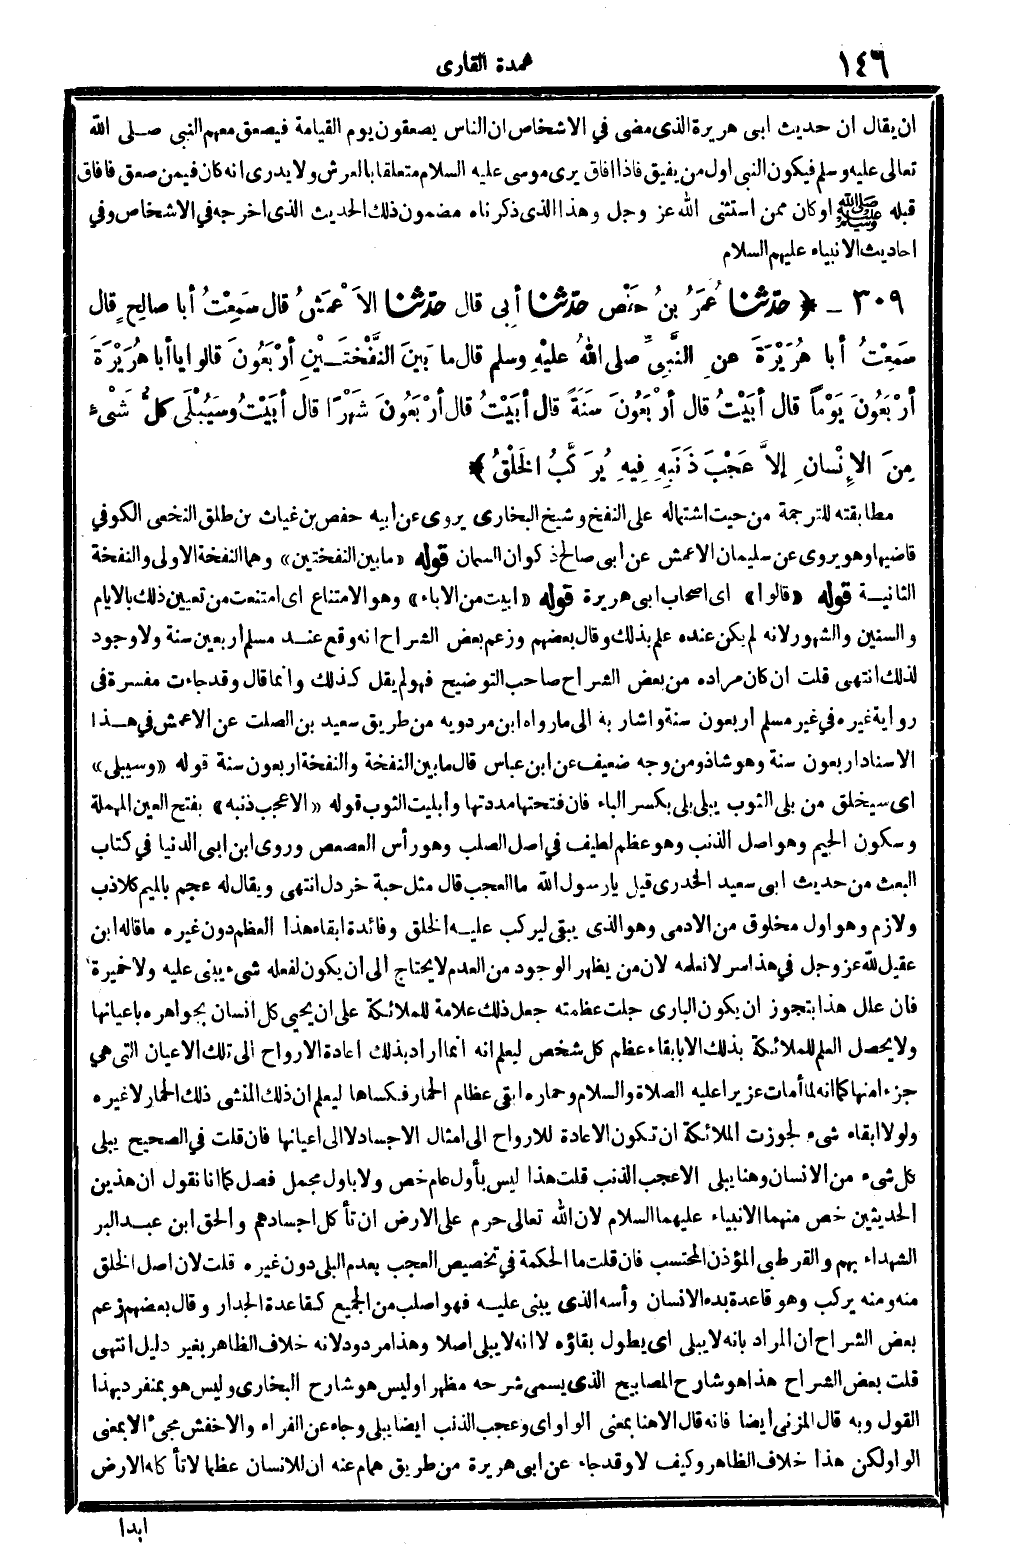 ١٤٦
عمدة القارى
ان يقال ان حديث ابى هريرة الذى مضى في الاشخاص ان الناس يصعقون يوم القيامة فيصعق معهم النبى صلى الله
تعالى عليه وسلم فيكون النبى اول من يفيق فاذا افاق يرى موسى عليه السلام متعلقا بالعرش ولا يدرى انه كان فيمن صعق فافاق
قبله ﷺ او كان ممن استثنى الله عز وجل وهذا الذى ذكرناه مضمون ذلك الحديث الذى اخرجه في الاشخاص وفي
احاديث الانبياء عليهم السلام
٣٠٩ - ﴿ حدّثنا عُمَرُ بنُ حَفْصٍ حدّثنا أبى قال حدّثنا الاَعْمَشُ قال سَمِعْتُ أبا صالِحٍ قال
سَمِعْتُ أبا هُرَيْرَةَ عنِ النَّبىِّ صلى اللهُ عليْهِ وسلم قال ما بَينَ النَّفْخَتَـيْنِ أرْبَعُونَ قالوا ياأبا هُرَيْرَةَ
أرْبَعُونَ يَوْماً قال أبَيْتُ قال أرْبَعُونَ سَنَةً قال أبَيْتُ قال أرْبَعُونَ شَهْرًا قال أبَيْتُ وسَيُبْلَى كلُّ شَىْءٍ
مِنَ الإِنْسانِ إلاَّ عَجْبَ ذَنَبِهِ فِيهِ يُرَكَّبُ الخَلْقُ ﴾
مطابقته للترجمة من حيث اشتماله على النفخ وشيخ البخارى يروى عن أبيه حفص بن غياث بن طلق النخعى الكوفي
قاضيها وهو يروى عن سليمان الاعمش عن أبى صالح ذكوان السمان قوله «مابين النفختين» وهما النفخة الاولى والنفخة
الثانيـة قوله «قالوا» اى اصحاب ابى هريرة قوله «ابيت من الاباء» وهو الامتناع اى امتنعت من تعيين ذلك بالايام
والسنين والشهور لانه لم يكن عنده علم بذلك وقال بعضهم وزعم بعض الشراح انه وقع عنـد مسلم اربعين سنة ولا وجود
لذلك انتهى قلت ان كان مراده من بعض الشراح صاحب التوضيح فهو لم يقل كذلك وانما قال وقد جاءت مفسرة فى
رواية غيره في غير مسلم أربعون سنة واشار به الى مارواه ابن مردويه من طريق سعيد بن الصلت عن الاعمش في هـذا
الاسناد اربعون سنة وهو شاذ ومن وجه ضعيف عن ابن عباس قال مابين النفخة والنفخة اربعون سنة قوله «وسيبلى»
اى سيخلق من بلى الثوب يبلى بلى بكسر الباء فان فتحتها مددتها وأبليت الثوب قوله «الا عجب ذنبه» بفتح العين المهملة
وسكون الجيم وهو اصل الذنب وهو عظم لطيف في اصل الصلب وهو رأس العصعص وروى ابن ابى الدنيا في كتاب
البعث من حديث ابى سعيد الخدرى قيل يارسول الله ما العجب قال مثل حبة خردل انتهى ويقال له عجم بالميم كلاذب
ولازم وهو اول مخلوق من الادمى وهو الذى يبقى ليركب عليـه الخلق وفائدة ابقاء هذا العظم دون غيره ماقاله ابن
عقيل لله عز وجل في هذا سر لا نعلمه لان من يظهر الوجود من العدم لا يحتاج الى ان يكون لفعله شىء يبنى عليه ولا خميرة
فان علل هذا بتجوز ان يكون البارى جلت عظمته جعل ذلك علامة للملائكة على ان يحيى كل انسان بجواهره باعيانها
ولا يحصل العلم للملائكة بذلك الا بابقاء عظم كل شخص ليعلم انه انما اراد بذلك اعادة الارواح الى تلك الاعيان التى هي
جزء امنها كما انه لما أمات عزيرا عليه الصلاة والسلام وحماره ابقى عظام الحمار فكساها ليعلم ان ذلك المنشى ذلك الحمار لا غيره
ولولا ابقاء شىء لجوزت الملائكة ان تكون الاعادة للارواح الى امثال الاجساد لا الى اعيانها فان قلت في الصحيح يبلى
كل شىء من الانسان وهنا يبلى الا عجب الذنب قلت هذا ليس بأول عام خص ولا باول مجمل فصل كما انا نقول ان هذين
الحديثين خص منهما الانبياء عليهما السلام لان الله تعالى حرم على الارض ان تأكل اجسادهم والحق ابن عبـد البر
الشهداء بهم والقرطبى المؤذن المحتسب فان قلت ما الحكمة في تخصيص العجب بعدم البلى دون غيره قلت لان اصل الخلق
منه ومنه يركب وهو قاعدة بدء الانسان وأسه الذى يبنى عليـه فهو اصلب من الجميع كقاعدة الجدار وقال بعضهم زعم
بعض الشراح أن المراد بانه لا يبلى اى يطول بقاؤه لا انه لا يبلى اصلا وهذا مردود لانه خلاف الظاهر بغير دليل انتهى
قلت بعض الشراح هذا هو شارح المصابيح الذى يسمى شرحه مظهرا وليس هو شارح البخارى وليس هو بمنفرد بهذا
القول وبه قال المزنى أيضا فانه قال الا هنا بمعنى الواو اى وعجب الذنب ايضا يبلى وجاء عن الفراء والاخفش مجىء الا بمعنى
الواو لكن هذا خلاف الظاهر وكيف لا وقد جاء عن ابى هريرة من طريق همام عنه ان للانسان عظما لا تأكله الارض
ابدا